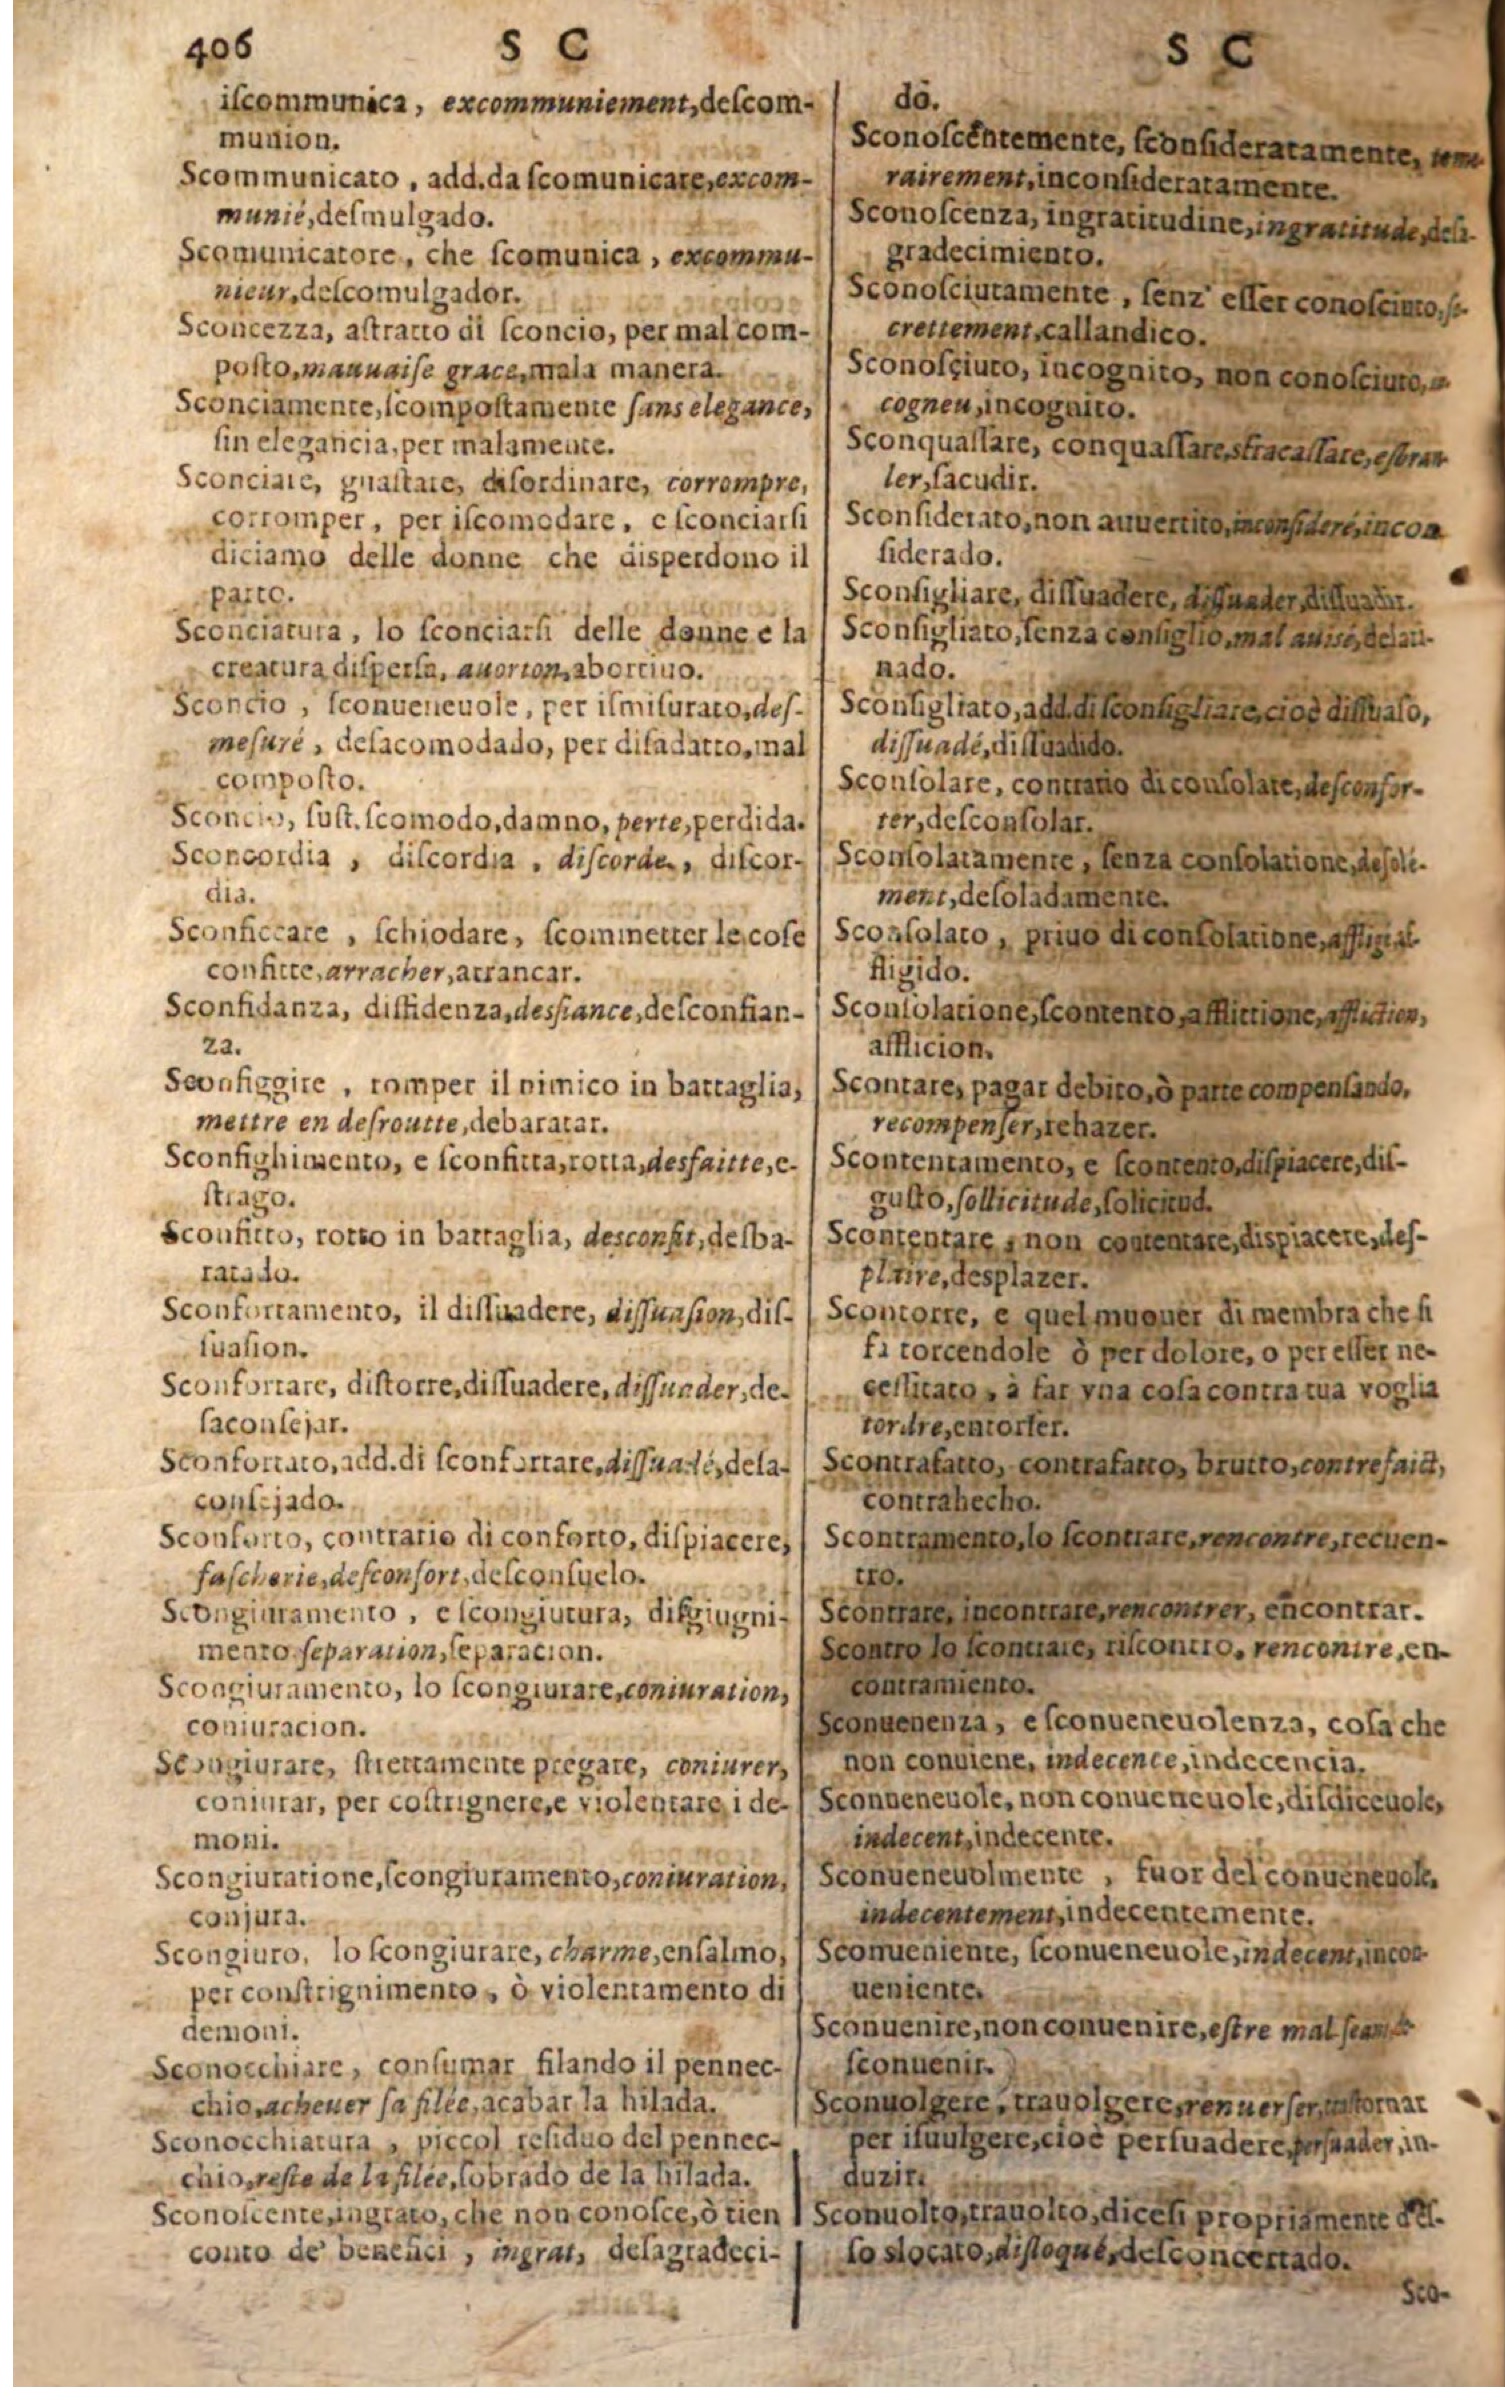 406 S C S C
iſcommunica, excommuniement, deſcom-
munion.
Scommunicato, add. da ſcomunicare, excom-
munié, deſmulgado.
Scomunicatore, che ſcomunica, excommu-
nieur, deſcomulgador.
Sconcezza, aſtratto di ſconcio, per mal com-
poſto, mauuaiſe grace, mala manera.
Sconciamente, ſcompoſtamente ſans elegance,
ſin elegancia, per malamente.
Sconciare, guaſtare, diſordinare, corrompre,
corromper, per iſcomodare, e ſconciarſi
diciamo delle donne che disperdono il
parto.
Sconciatura, lo ſconciarſi delle donne e la
creatura diſperſa, auorton, abortiuo.
Sconcio, ſconueneuole, per iſmiſurato, deſ-
meſuré, deſacomodado, per diſadatto, mal
compoſto.
Sconcio, ſuſt. ſcomodo, damno, perte, perdida.
Sconcordia, diſcordia, diſcorde, diſcor-
dia.
Sconficcare, ſchiodare, ſcommetter le coſe
confitte, arracher, arrancar.
Sconfidanza, diffidenza, desfiance, deſconfian-
za.
Sconfiggire, romper il nimico in battaglia,
mettre en deſroutte, debaratar.
Sconfighimento, e ſconfitta, rotta, desfaitte, e-
ſtrago.
Sconfitto, rotto in battaglia, desconfit, deſba-
ratado.
Sconfortamento, il diſſuadere, diſſuaſion, diſ-
ſuaſion.
Sconfortare, diſtorre, diſſuadere, diſſuader, de-
ſaconſejar.
Sconfortato, add. di ſconfortare, diſſuadé, deſa-
conſejado.
Sconforto, contrario di conforto, diſpiacere,
faſcherie, deſconfort, deſconſuelo.
Scongiuramento, e ſcongiutura, diſgiugni-
mento ſeparation, ſeparacion.
Scongiuramento, lo ſcongiurare, coniuration,
coniuracion.
Scongiurare, ſtrettamente pregare, coniurer,
coniurar, per coſtrignere, e violentare i de-
moni.
Scongiuratione, ſcongiuramento, coniuration,
conjura.
Scongiuro, lo ſcongiurare, charme, enſalmo,
per conſtrignimento, ò violentamento di
demoni.
Sconocchiare, conſumar filando il pennec-
chio, acheuer ſa filée, acabar la hilada.
Sconocchiatura, piccol reſiduo del pennec-
chio, reſte de la filée, ſobrado de la hilada.
Sconoſcente, ingrato, che non conoſce, ò tien
conto de' benefici, ingrat, deſagradeci-
do.
Sconoſcentemente, ſconſideratamente, teme-
rairement, inconſideratamente.
Sconoſcenza, ingratitudine, ingratitude, deſa-
gradecimiento.
Sconoſciutamente, ſenz' eſſer conoſciuto, ſe-
crettement, callandico.
Sconoſciuto, incognito, non conoſciuto,
cogneu, incognito.
Sconquaſſare, conquaſſare, sfracaſſare, eſbran
ler, ſacudir.
Sconſiderato, non auuertito, inconſideré, incon
ſiderado.
Sconſigliare, diſſuadere, diſſuader, diſſuadir.
Sconſigliato, ſenza conſiglio, mal auisé,
nado.
Sconſigliato, add. di ſconſigliare, cioè diſſuaſo,
diſſuadé, diſſuadido.
Sconſolare, contrario di conſolare, deſconfor-
ter, deſconſolar.
Sconſolatamente, ſenza conſolatione, deſolé-
ment, deſoladamente.
Sconſolato, priuo di conſolatione, affligé af-
fligido.
Sconſolatione, ſcontento, afflittione, affliction,
afflicion.
Scontare, pagar debito, ò parte compenſando,
recompenſer, rehazer.
Scontentamento, e ſcontento, diſpiacere, diſ-
guſto, ſollicitude, ſolicitud.
Scontentare, non contentare, dispiacere, deſ-
plaire, desplazer.
Scontorre, e quel muouer di membra che ſi
fa torcendole ò per dolore, o per eſſer ne-
ceſſitato, à far vna coſa contra tua voglia
tordre, entorſer.
Scontrafatto, contrafatto, brutto, contrefaict,
contrahecho.
Scontramento, lo ſcontrare, rencontre, recuen-
tro.
Scontrare, incontrare, rencontrer, encontrar.
Scontro lo ſcontrare, riſcontro, rencontre, en-
contramiento.
Sconuenenza, e ſconueneuolenza, coſa che
non conuiene, indecence, indecencia.
Sconueneuole, non conueneuole, diſdiceuole,
indecent, indecente.
Sconueneuolmente, fuor del conueneuole,
indecentement, indecentemente.
Sconueniente, ſconueneuole, indecent, incon-
ueniente.
Sconuenire, non conuenire, eſtre mal ſeant
ſconuenir.
Sconuolgere, trauolgere, renuerſer, traſtornar
per iſuulgere, cioè perſuadere, perſuader, in-
duzir.
Sconuolto, trauolto, diceſi propriamente d'oſ-
ſo slogato, diſloqué, deſconcertado.
Sco-